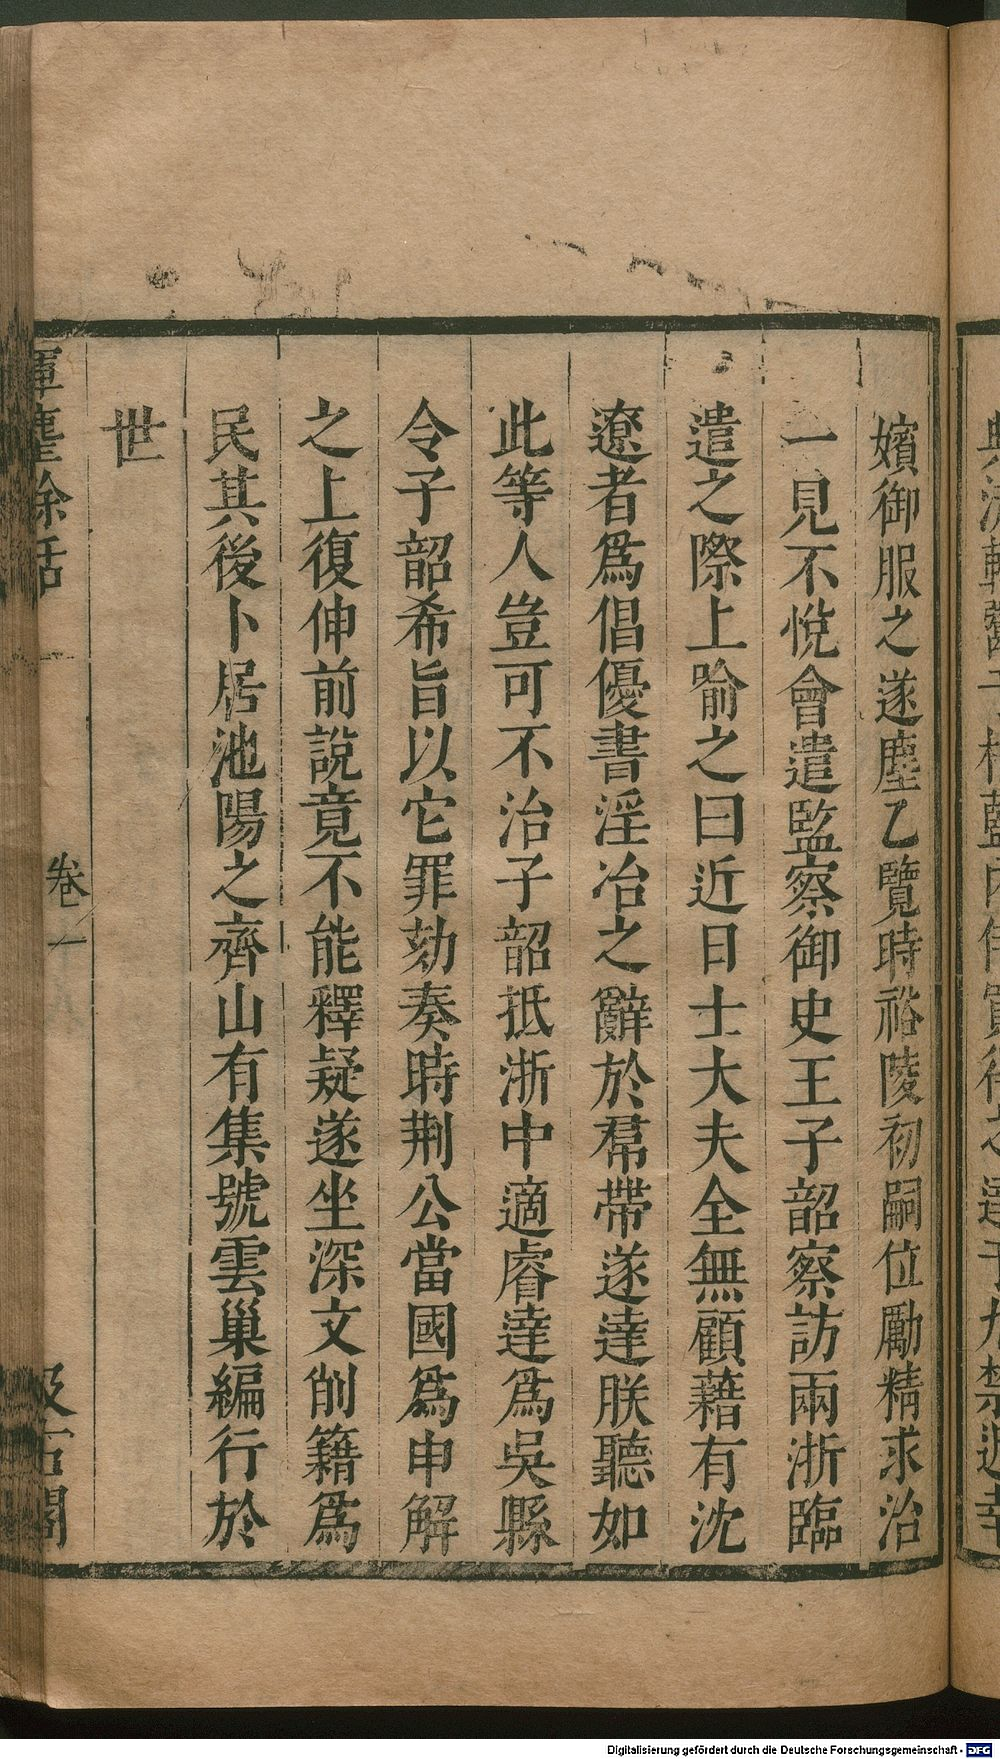 嬪御服之遂塵乙覽時裕陵初嗣位勵精求治
一見不悅會遣監察御史王子韶察訪兩浙臨
遣之際上喻之曰近日士大夫全無顧藉有沈
遼者爲倡優書淫冶之辭於帬帶遂達朕聽如
此等人豈可不治子韶抵浙中適睿達爲吳縣
令子韶希旨以它罪劾奏時荆公當國爲申解
之上復伸前說竟不能釋疑遂坐深文削籍爲
民其後卜居池陽之齊山有集號雲巢編行於
世
揮麈餘話
卷一
汲古閣
Digitalisierung gefördert durch die Deutsche Forschungsgemeinschaft - DFG